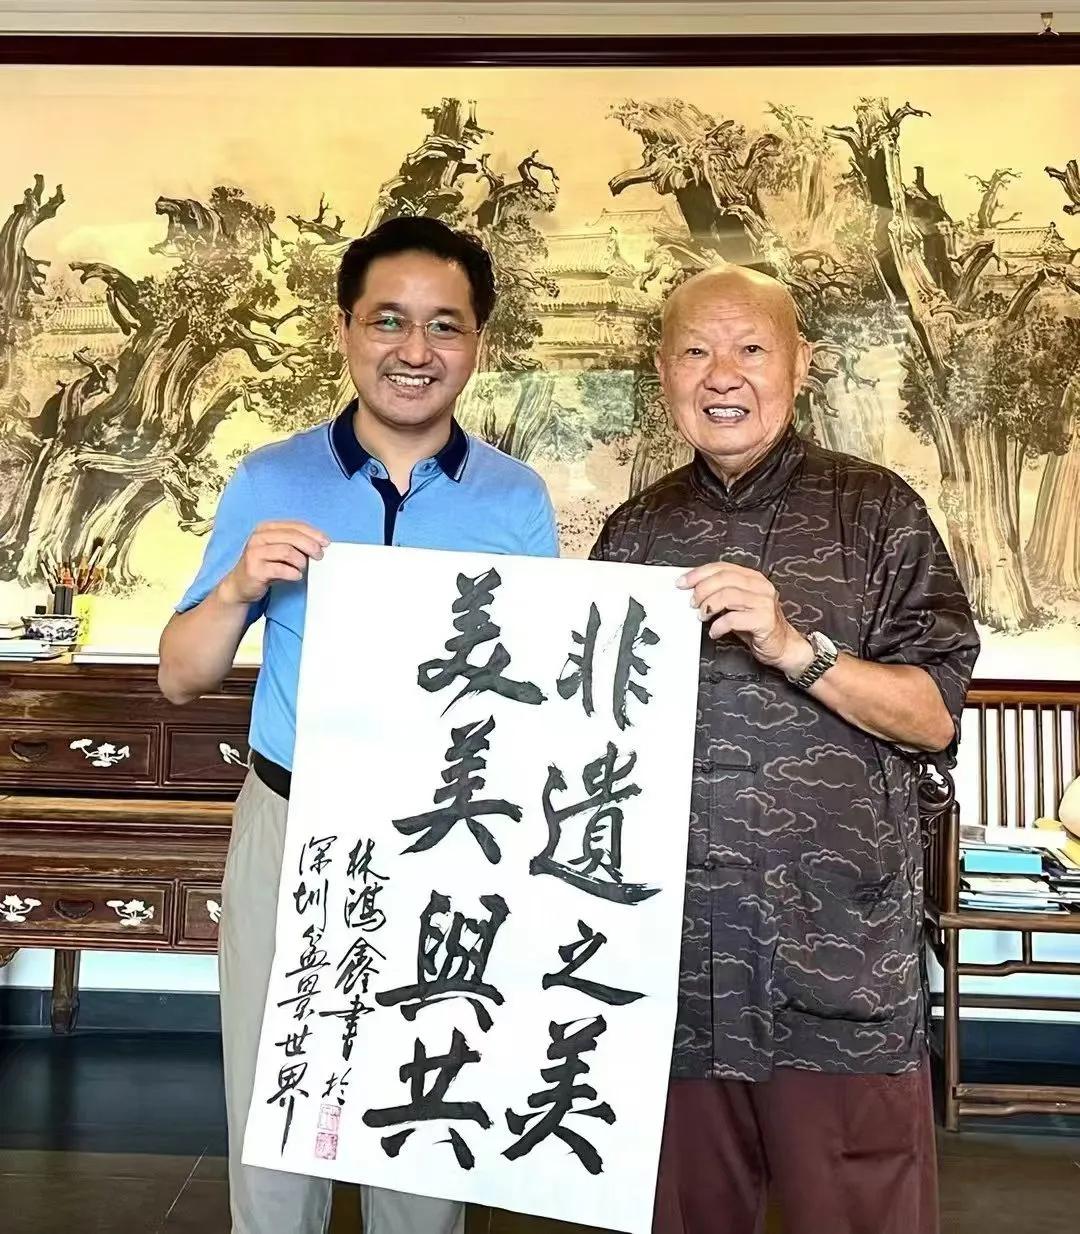 非遺之美
美美與共
林鴻鑫書於
深圳盆景世界